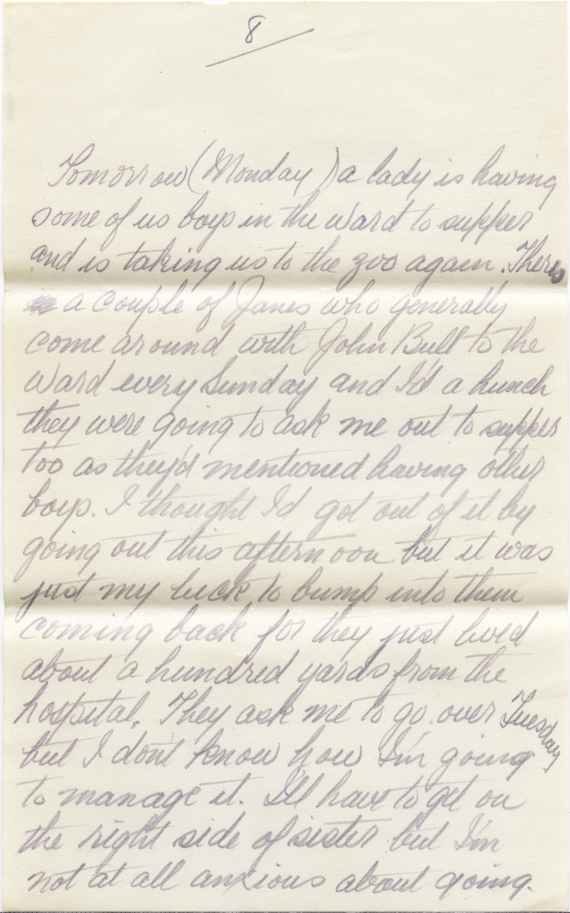 8
Tomorrow (Monday) a lady is having
some of us boys in the ward to supper
and is taking us to the zoo again. Theres
a couple of Janes who generally
come around with John Bull to the
ward every Sunday and I'd a hunch
they were going to ask me out to supper
too as they'd mentioned having other
boys. I thought I'd got out of it by
going out this afternoon but it was
just my luck to bump into them
coming back for they just lived
about a hundred yards from the
hospital. They ask me to go over Tuesday
but I don't know how I'm going
to manage it. I'll have to get on
the right side of sister but I'm
not at all anxious about going.